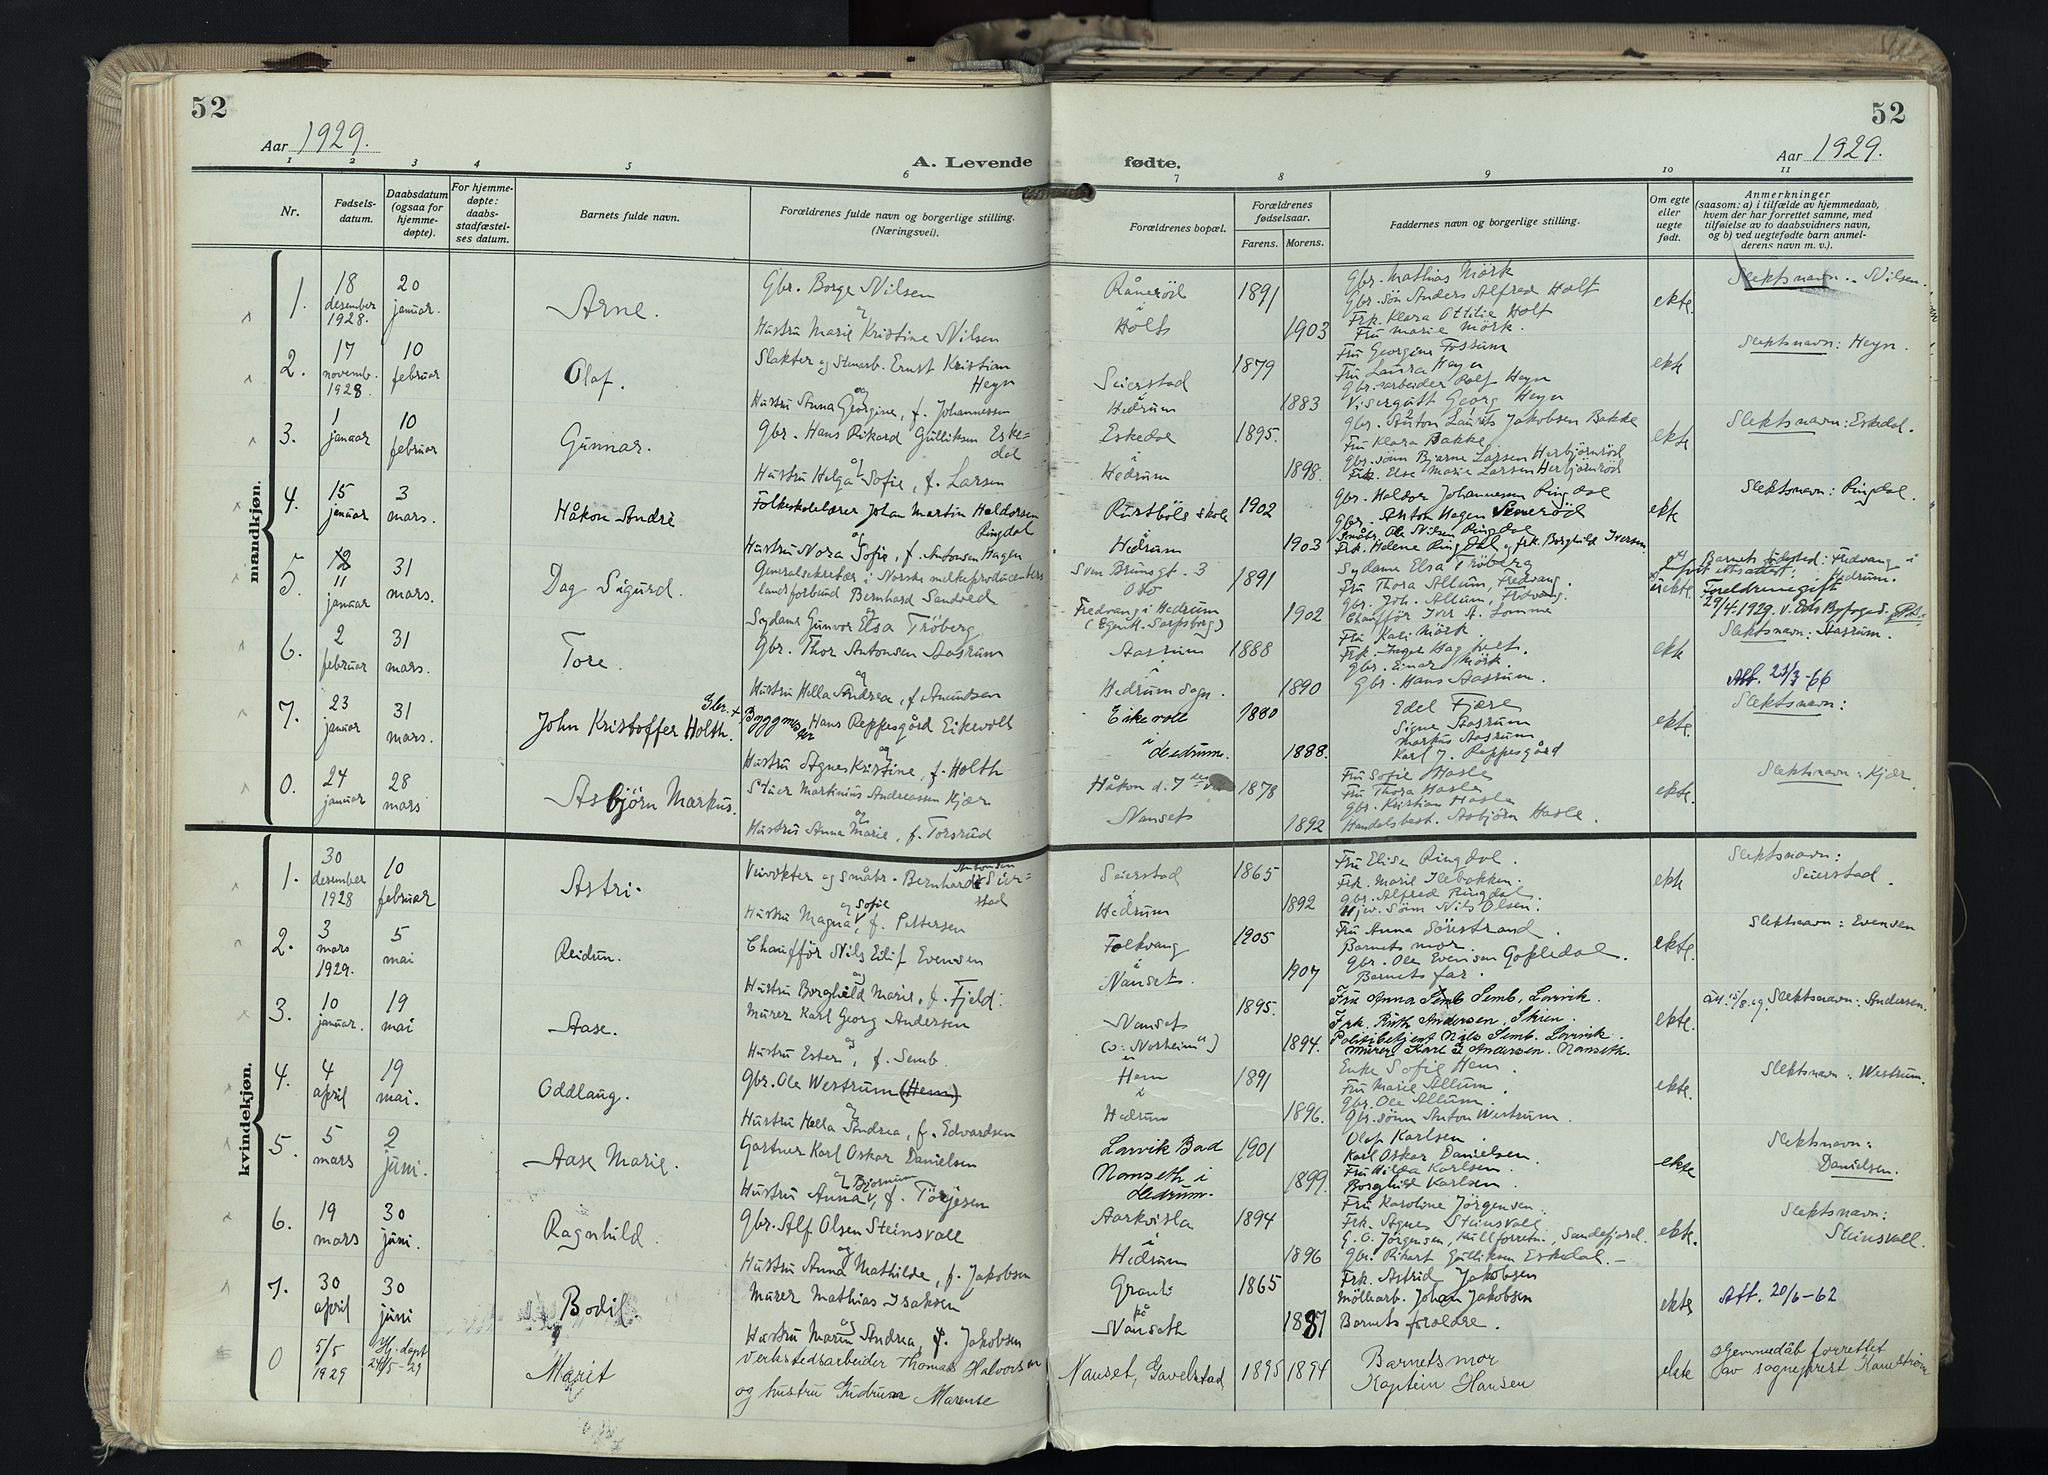 52
52
Aar 1929.
A. Levende fødte.
Aar 1929.
1 2 3 4 5 6 7 8 9 10 11
Nr.
Fødsels-
datum.
Daabsdatum
(ogsaa for
hjemme-
døpte).
For hjemme-
døpte:
daabs-
stadfæstel-
ses datum.
Barnets fulde navn.
Forældrenes fulde navn og borgerlige stilling.
(Næringsvei).
Forældrenes bopæl.
Forældrenes
fødselsaar.
Farens. Morens.
Faddernes navn og borgerlige stilling.
Om egte
eller
uegte
født.
Anmerkninger
(saasom: a) i tilfælde av hjemmedaab,
hvem der har forrettet samme, med
tilføielse av to daabsvidners navn,
og b) ved uegtefødte barn anmel-
derens navn m. v.).
mandkjøn.
1. 18 desember 1928. 20 januar. Arne.
Gbr. Borge Nilsen
og
Hustru Marie Kristine Nilsen
Rånerød i Holts 1891 1903
Gbr. Mathias Mørk
Gbr. søn Anders Alfred Holt
Frk. Klara Otilie Holt
Fru Marie Mørk.
ekte. Slektsnavn: Nilsen.
2. 17 novemb. 1928 10 februar Olaf.
Slakter og Stenarb. Ernst Kristian
Heyn
og
Hustru Anna Georgine, f. Johannessen
Seierstad i Hedrum 1879 1883
Fru Georgine Fossum
Fru Laura Heyn
Gbr. arbeider Rolf Heyn
Visergutt Georg Heyn
ekte Slektsnavn: Heyn.
3. 1 januar 10 februar Gunnar.
Gbr. Hans Rikard Gulliksen Eske-
dal
og
Hustru Helga Sofie, f. Larsen
Eskedal i Hedrum 1895. 1898.
Gbr. Anton Laurits Jakobsen Bakke
Fru Klara Bakke
Gbr. sønn Bjarne Larsen Herbjørnrød
Frk. Else Marie Larsen Herbjørnrød
ekte Slektsnavn: Eskedal.
4. 15 januar 3 mars. Håkon André
Folkeskolelærer Johan Martin Haldorsen
Ringdal
og
Hustru Nora Sofie, f. Antonsen Hagen
Rustbøle skole Hedrum 1902 1903
Gbr. Haldor Johannessen Ringdal
Gbr. Anton Hagen
Småbr. Ole Nilsen Ringdal
Frk. Helene Ringdal og frk. Borghild Iversen
ekte Slektsnavn: Ringdal.
5. 11 januar 31 mars. Dag Sigurd.
Generalsekretær i Norske melkeproducenters
landsforbund Bernhard Sandved
og
Sydame Gunvor Elsa Trøberg
Sven Brunsgt. 3
Oslo
Fredvang i Hedrum
1891 1902
Sydame Elsa Trøberg
Fru Thora Allum, Fredvang.
Gbr. Joh. Allum, Fredvang
Chauffør Iver A. Lomme
uekte. Barnets fødested: Fredvang i
Hedrum.
Foreldrene gift
29/4.1929 v. Oslo Byfoged.
6. 2 februar 31 mars. Tore.
Gbr. Thor Antonsen Aasrum
og
Hustru Hella Andrea, f. Amundsen
Aasrum i Hedrum sogn. 1888 1890
Fru Kari Mørk.
Gbr. Einar Mørk.
Gbr. Hans Aasrum.
ekte Slektsnavn: Aasrum.
7. 23 januar 31 mars. John Kristoffer Holth.
Gbr. +
Byggmester Hans Reppesgård Eikevoll
og
Hustru Agnes Kristine, f. Holth
Eikevoll i Hedrum. 1880 1888.
Edel Fjære
Signe Aasrum
Markus Aasrum
Karl J. Reppesgård
ekte. Att. 23/3-66
Slektsnavn:
0. 24 januar 28 mars Asbjørn Markus.
Martinius Andreassen Kjær
og
Hustru Anna Marie, f. Torsrud
Håkon d. 7 den
Nansets 1878 1892
Fru Sofie Hasle
Fru Thora Hasle
Gbr. Kristian Hasle
Handelsbest. Asbjørn Hasle.
ekte. Slektsnavn: Kjær.
kvindekjøn.
1. 30 desember 1928 10 februar Astri.
Veivokter og småbr. Bernhard Antonsen Seier-
stad
og
Hustru Magna Sofie, f. Pettersen
Seierstad i Hedrum 1865 1892
Fru Elise Ringdal.
Frk. Marie Ilebakken.
Gbr. Alfred Ringdal
Hjev. sønn Nils Olsen.
ekte Slektsnavn:
Seierstad.
2. 3 mars 1929. 5 mai Reidun.
Chauffør Nils Eilif Evensen
og
Hustru Borghild Marie, f. Fjeld.
Folkvang i Nansets. 1905 1907
Fru Anna Sørestrand.
Barnets mor.
Gbr. Ole Evensen Gopledal.
Barnets far.
ekte. Slektsnavn: Evensen
3. 10 januar. 19 mai Aase.
Murer Karl Georg Andersen
og
Hustru Ester, f. Semb.
Nansets
("Norheim") 1895. 1894.
Fru Anna Semb, Larvik.
Frk. Ruth Andersen, Skien.
Politibetjent Nils Semb. Larvik.
Murer Karl G Andersen. Nanseth.
ekte. Att. 15/8.69. Slektsnavn: Andersen.
4. 4 april 19 mai. Oddlaug.
Gbr. Ole Westrum (Hem)
og
Hustru Hella Andrea, f. Edvardsen
Hem i Hedrum 1891 1896.
Enke Sofie Hem.
Fru Marie Allum.
Gbr. Ole Allum.
Gbr. sønn Anton Westrum.
ekte. Slektsnavn: Westrum.
5. 5 mars 2 juni. Aase Marie.
Gartner Karl Oskar Danielsen
og Bjørnine
Hustru Anna, f. Torjesen
Larvik Bad
Nanseth i
Hedrum. 1901 1899.
Olaf Karlsen.
Karl Oskar Danielsen.
Fru Hilda Karlsen.
Borghild Karlsen.
ekte Slektsnavn:
Danielsen.
6. 19 mars 30 juni. Ragnhild.
Gbr. Alf Olsen Steinsvall
og
Hustru Anna Mathilde, f. Jakobsen
Aarkvisla i Hedrum 1894 1896
Fru Karoline Jørgensen.
Frk. Agnes Steinsvall
G. O. Jørgensen, Kullforretn., Sandefjord.
Gbr. Rikart Gulliksen Eskedal.
ekte. Slektsnavn:
Steinsvall.
7. 30 april 30 juni Bodil.
Murer Mathias Isaksen
og
Hustru Maren Andrea, f. Jakobsen
Granli på Nanseth 1865 1887
Frk. Astrid Jakobsen
Møllearb. Johan Jakobsen
Barnets foreldre.
ekte Att. 20/6-62
0 5/5 1929 Hj. døpt 24/5-29 Marit
Verkstedsarbeider Thomas Halvorsen
og hustru Gudrun Marense
Nanset, Gavelstad 1895 1894
Barnets mor
Kaptein Hansen
ekte Hjemmedåb forrettet
av sogneprest